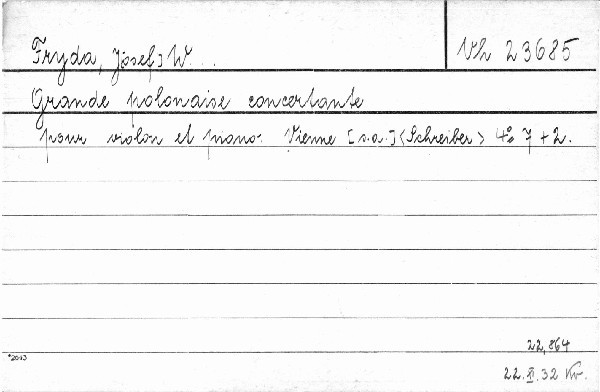 Fryda, Josef W.
Vh 23685
Grande polonaise concertante
pour violon et piano. Vienne [s.a.] <Schreiber> 4° 7 + 2.
22,864
*2043
22. II. 32 Kv.